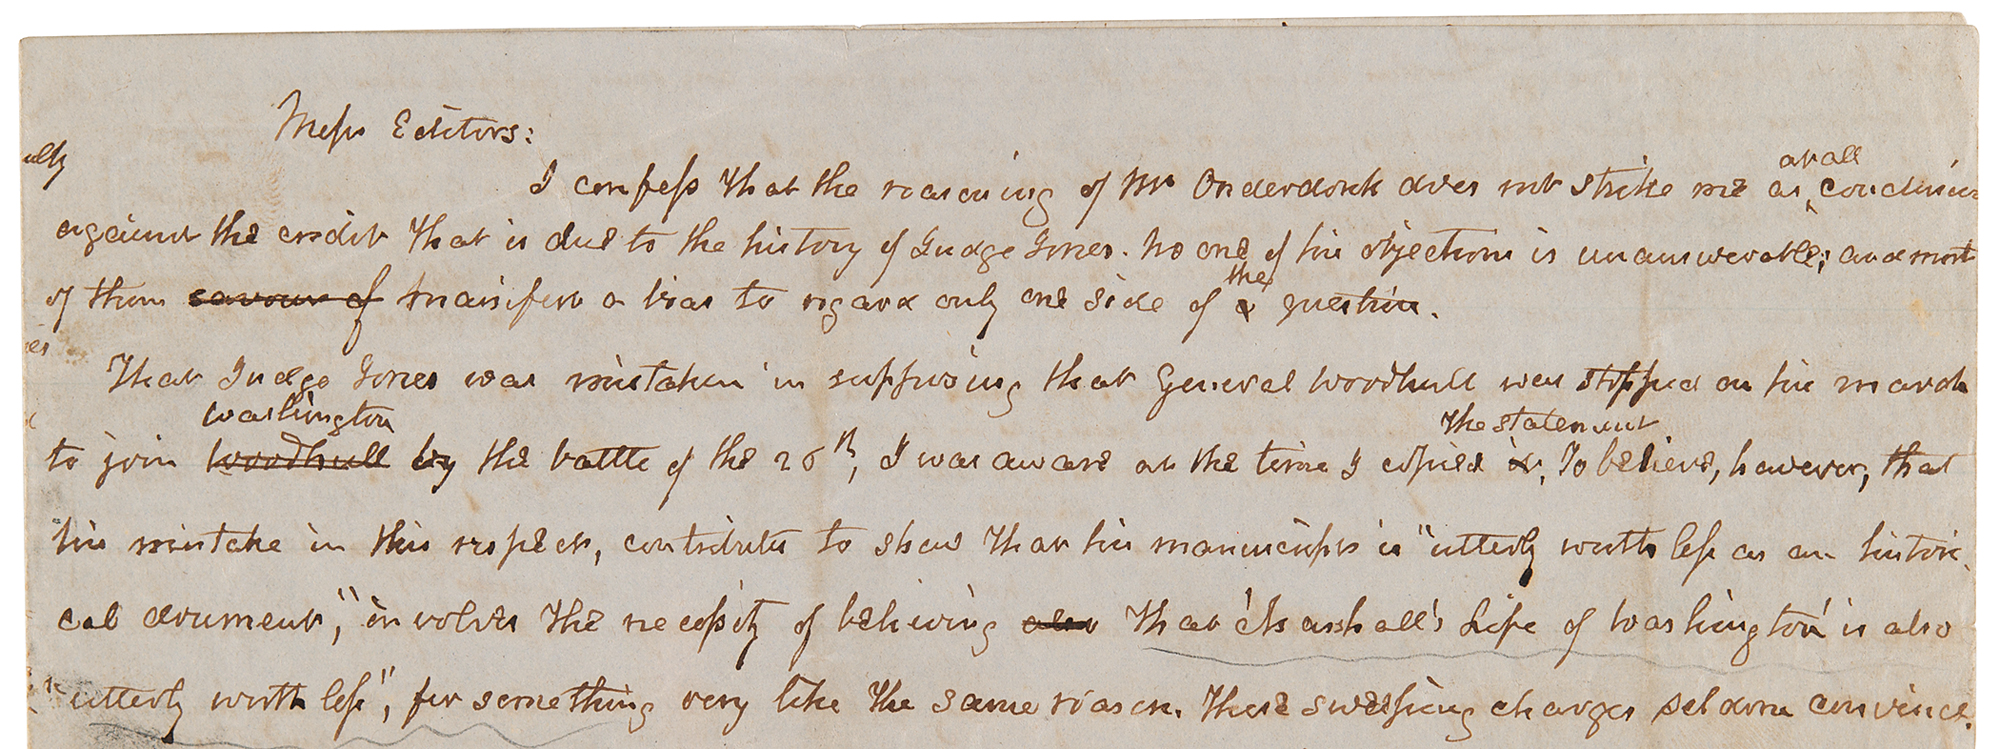 Mess Editors:
I confess that the reasoning of Mr Onderdonk does not strike me as at all conclusive
against the credit that is due to the history of Judge Jones. No one of his objections is unanswerable; and most
of them savour of manifest a bias to regard only one side of a the question.
That Judge Jones was mistaken in supposing that General Woodhull was stopped on his march
to join Woodhull Washington by the battle of the 26th, I was aware at the time I copied it. the statement To believe, however, that
his mistake in this respect, contributes to show that his manuscript is "utterly worthless as an histori-
cal document," involves the necessity of believing also that 'Marshall's Life of Washington' is also
"utterly worthless", for something very like the same reason. These sweeping charges seldom convince.